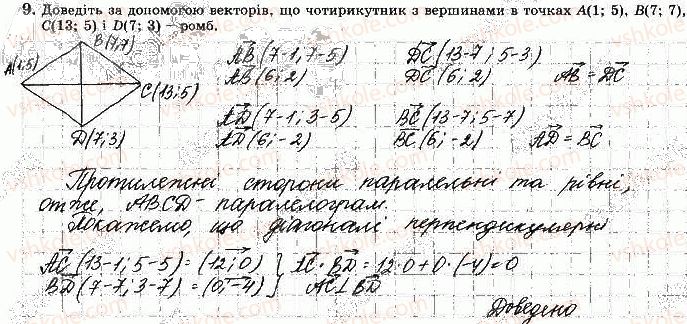 9. Доведіть за допомогою векторів, що чотирикутник з вершинами в точках A(1; 5), B(7; 7),
C(13; 5) і D(7; 3) – ромб.
B(7;7)
A(1;5)
C(13;5)
D(7;3)
AB (7-1; 7-5) DC (13-7; 5-3)
AB (6; 2) DC (6; 2) AB = DC
AD (7-1; 3-5) BC (13-7; 5-7)
AD (6; -2) BC (6; -2) AD = BC
Протилежні сторони паралельні та рівні,
отже, ABCD - паралелограм.
Покажемо, що діагоналі перпендикулярні
AC (13-1; 5-5) = (12; 0) AC · BD = 12·0+0·(-4)=0
BD (7-7; 3-7) = (0; -4) AC ⊥ BD
Доведено